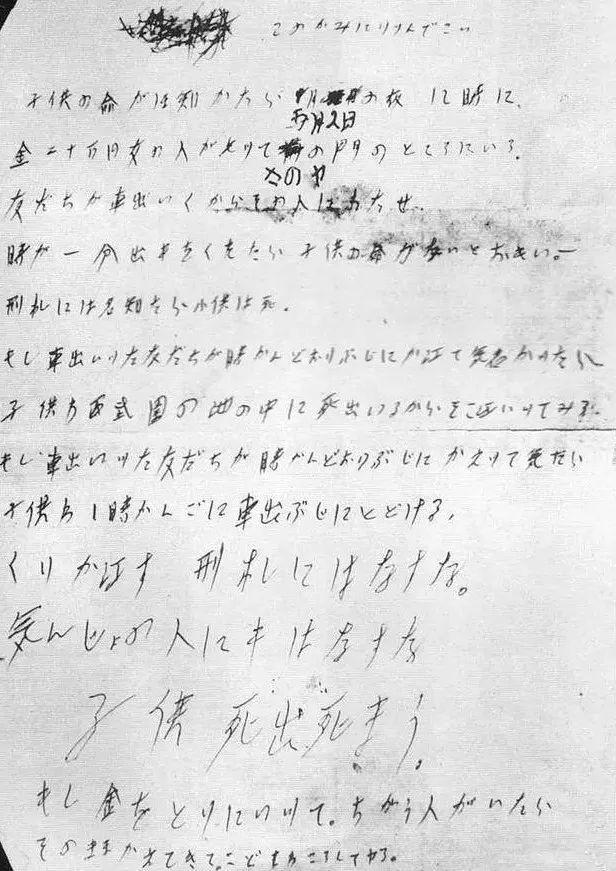 このかみにツツんでこい
子供の命がほ知かたら の夜 12時に、
五月2日
金二十万円女の人がもツて の門のところにいろ。
さのヤ
友だちが車出いくからその人にわたせ。
時が一分出もをくれたら子供の命がないとおもい。
刑札には名知たら小供は死。
もし車出いツた友だちが時かんどおりぶじにかエて気名かツたら
子供わ西武園の池の中に死出いるからそこエいツてみろ。
もし車出いツた友だちが時かんどおりぶじにかえツて気たら
子供わ1時かんごに車出ぶじにとどける。
くりかエす 刑札にはなすな。
気んじょの人にもはなすな
子供死出死まう。
もし金をとりにいツて。ちがう人がいたら
そのままかえてきて。こどもわころしてヤる。